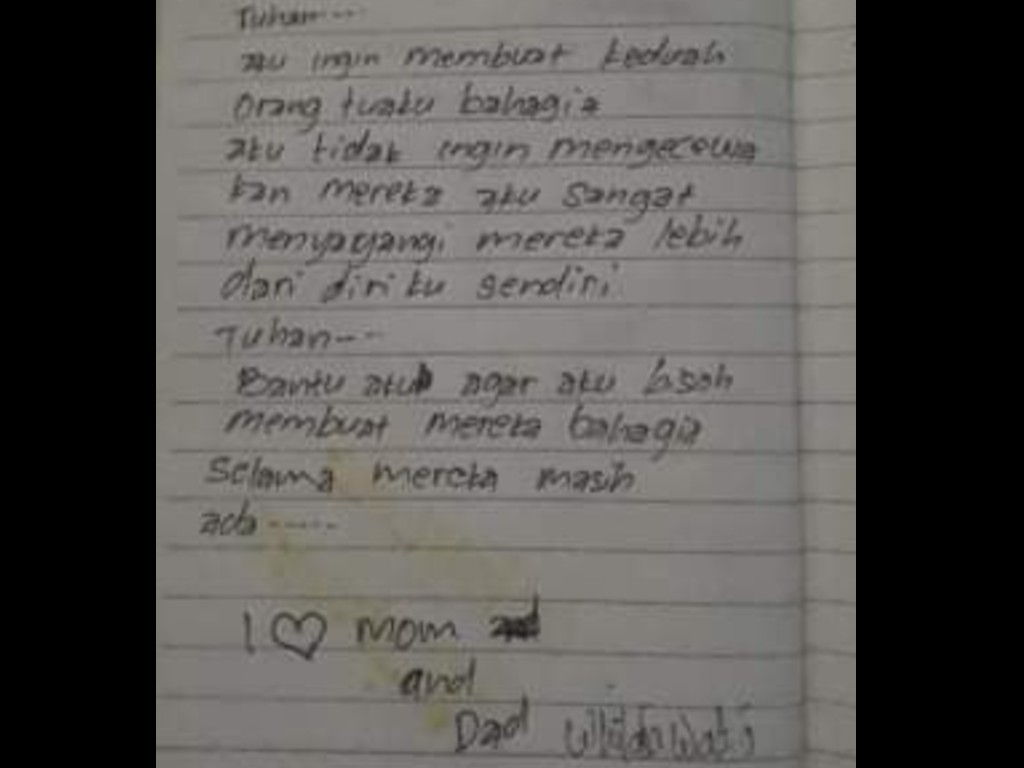 Tuhan----
aku ingin membuat keduah
orang tuaku bahagia
aku tidak ingin mengecewa
kan mereka aku sangat
menyayangi mereka lebih
dari diriku sendiri
Tuhan---
Bantu aku agar aku bisah
membuat mereka bahagia
selama mereka masih
ada-----
I ♡ mom
and
Dad